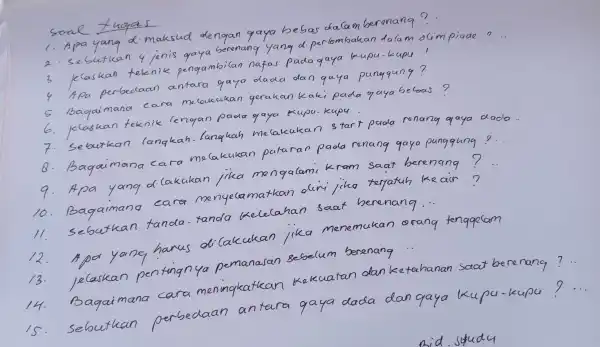 Soal tugas
1. Apa yang d. maksud dengan gaya bebas dalam berenang ?..
2. Sebutkan 4 jenis gaya berenang yang d perlombakan dalam olimpiade ?..
3 jelaskan teknik pengambilan nafas pada gaya kupu-kupu !
4 Apa perbedaan antara gaya dada dan gaya punggung ?
5 Bagaimana cara melakukan gerakan kaki pada gaya bebas ?
6. jelaskan teknik lengan pada gaya kupu-kupu.
7. Sebutkan langkah-langkah melakukan start pada renang gaya dada..
8. Bagaimana cara melakukan putaran pada renang gaya punggung ?..
9. Apa yang dilakukan jika mengalami kram saat berenang ?..
10. Bagaimana cara menyelamatkan diri jika terjatuh ke air ?
11. Sebutkan tanda-tanda kelelahan saat berenang...
12. Apa yang harus dilakukan jika menemukan orang tenggelam
13. jelaskan pentingnya pemanasan sebelum berenang ..
14. Bagaimana cara meningkatkan kekuatan dan ketahanan saat berenang ?..
15. Sebutkan perbedaan antara gaya dada dan gaya kupu-kupu ?...
study